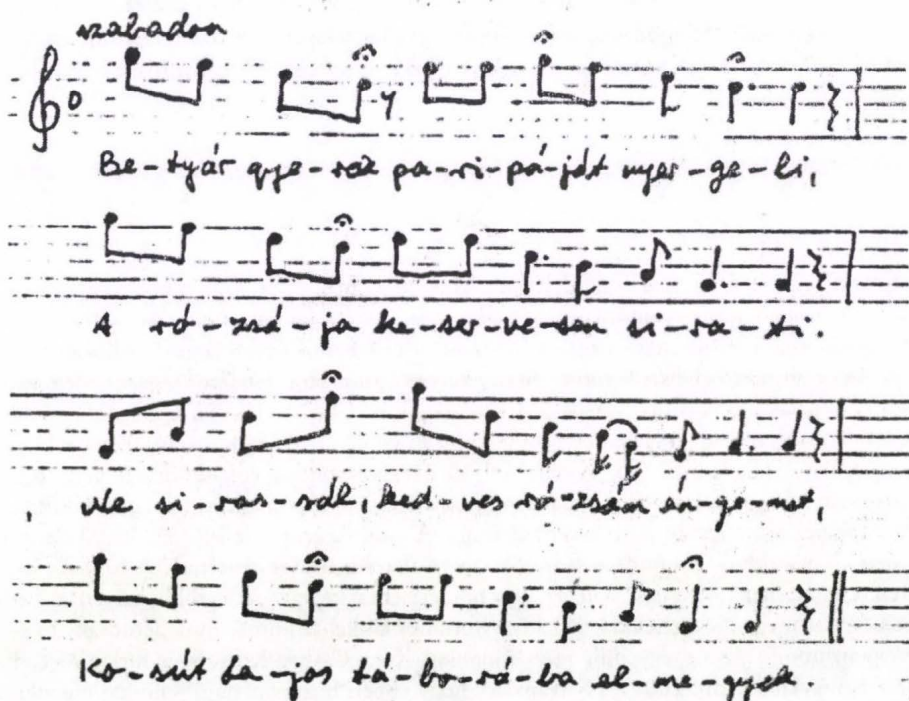 szabadon
Be-tyár gye-rek pa-ri-pá-ját nyer-ge-li,
A ró-zsá-ja ke-ser-ve-sen si-ra-ti.
Ne si-ras-sál, ked-ves ró-zsám én-ge-met,
Ko-sút La-jos tá-bo-rá-ba el-me-gyek.